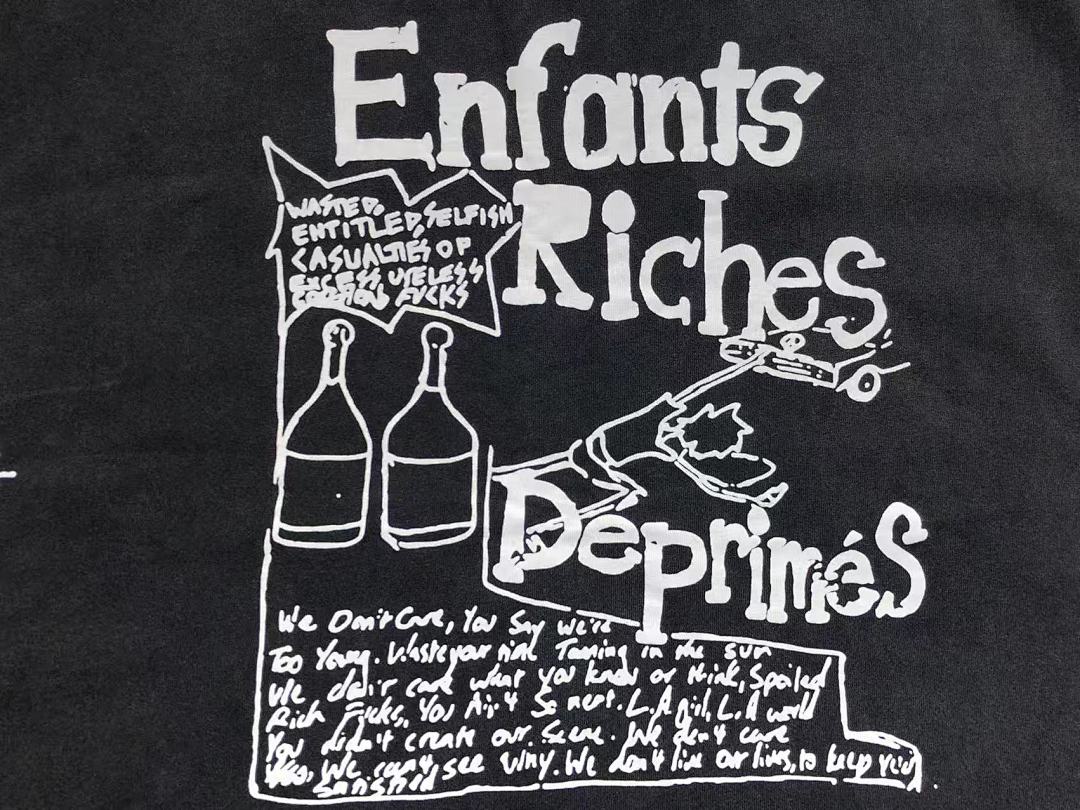 Enfants
Riches
Deprimés
WASTED,
ENTITLED, SELFISH
CASUALTIES OF
EXCESS, USELESS
FUCKS
We Don't Care, You Say We're
Too Young. Waste your time Tanning in the sun
We don't care what you know or think, Spoiled
Rich Fucks, You Ain't So neat. L.A girl, L.A world
You didn't create our scene. We don't care
We can't see Why. We don't live our lives, to keep you
satisfied